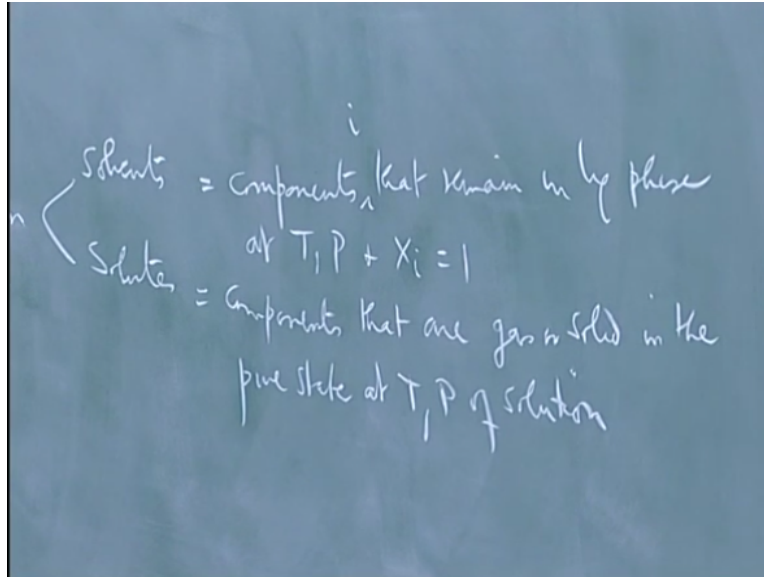 i
n
Solvents = Components ‸ that remain in liq phase
at T, P + Xi = 1
Solutes = Components that are gas or solid in the
pure state at T, P of solution